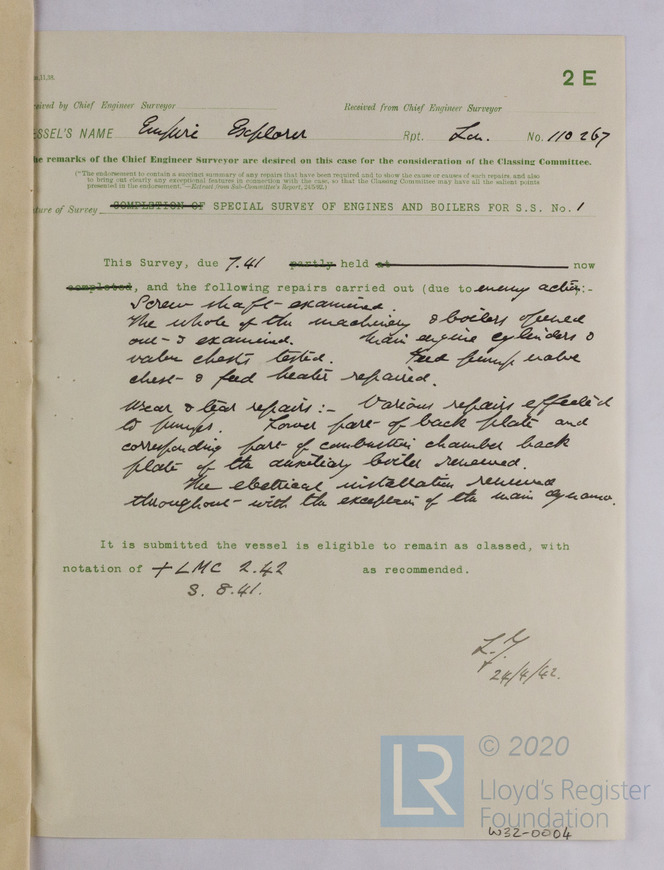 11.38.
2 E
ceived by Chief Engineer Surveyor
Received from Chief Engineer Surveyor
ESSEL'S NAME Empire Explorer Rpt. Lon. No. 110267
he remarks of the Chief Engineer Surveyor are desired on this case for the consideration of the Classing Committee.
("The endorsement to contain a succinct summary of any repairs that have been required and to show the cause or causes of such repairs, and also
to bring out clearly any exceptional features in connection with the case, so that the Classing Committee may have all the salient points
presented in the endorsement."—Extract from Sub-Committee's Report, 24/5/92.)
ture of Survey COMPLETION OF SPECIAL SURVEY OF ENGINES AND BOILERS FOR S.S. No. 1
This Survey, due 7.41 partly held at now
completed, and the following repairs carried out (due to enemy action):-
Screw shaft examined.
The whole of the machinery & boilers opened
out & examined. Main engine cylinders &
valve chests tested. Feed pump valve
chest & feed heater repaired.
Wear & tear repairs:- Various repairs effected
to pumps. Lower part of back plate and
corresponding part of combustion chamber back
plate of the auxiliary boiler renewed.
The electrical installation renewed
throughout with the exception of the main dynamo.
It is submitted the vessel is eligible to remain as classed, with
notation of + LMC 2.42 as recommended.
S. 8.41.
24/4/42.
LR
© 2020
Lloyd's Register
Foundation
W32-0004